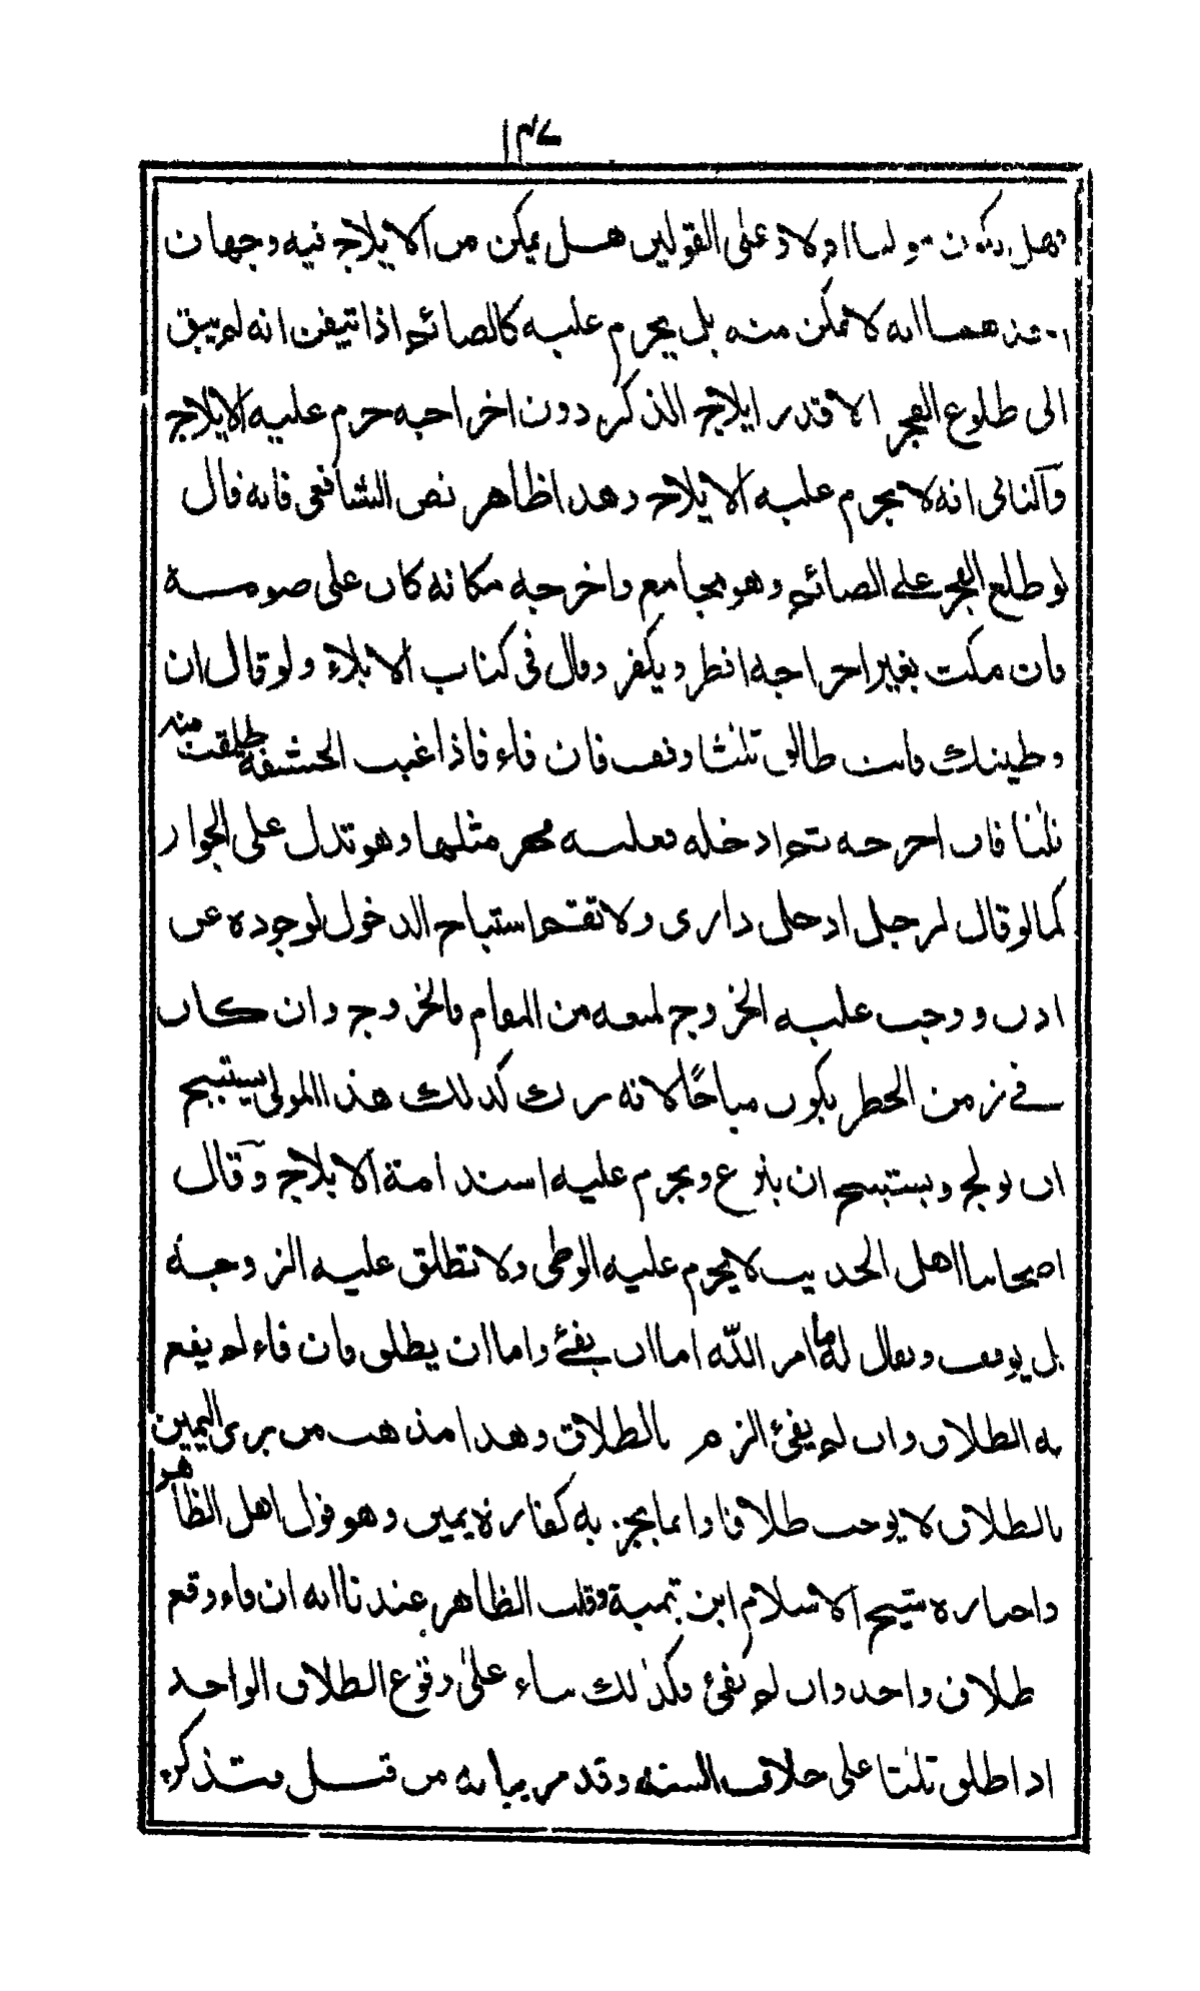 ١٣٧
فهل يكون موليا اولا وعلى القولين هل يمكن من الايلاج فيه وجهان
احدهما انه لا يمكن منه بل يحرم عليه كالصائم اذا تيقن انه لم يبق
الى طلوع الفجر الا قدر ايلاج الذكر دون اخراجه حرم عليه الايلاج
والثانى انه لا يحرم عليه الايلاج وهذا ظاهر نص الشافعى فانه قال
لو طلع الفجر على الصائم وهو مجامع واخرجه مكانه كان على صومه
فان مكث بغير اخراجه افطر ويكفر وقال فى كتاب الايلاء ولو قال ان
وطيتك فانت طالق ثلثا وقف فان فاء فاذا غيب الحشفة طلقت منه
ثلثا فان اخرجه ثم ادخله فعليه مهر مثلها وهو تدل على الجواز
كما لو قال لرجل ادخل دارى ولا تقم استباح الدخول لوجوده عن
اذن ووجب عليه الخروج لمنعه من المقام فالخروج وان كان
فى زمن الحظر يكون مباحًا لانه ترك كذلك هذا المولى يستبيح
ان يولج ويستبيح ان ينزع ويحرم عليه استدامة الايلاج وقال
اصحابنا اهل الحديث لا يحرم عليه الوطى ولا تطلق عليه الزوجة
بل يوقف ويقال له ما امر الله اما ان يفئ واما ان يطلق فان فاء لم يقع
به الطلاق وان لم يفئ الزم بالطلاق وهذا مذهب من يرى اليمين
بالطلاق لا يوجب طلاقا وانما يجزيه كفارة يمين وهو قول اهل الظاهر
واختاره شيخ الاسلام ابن تيمية وقلت الظاهر عندنا انه ان فاء وقع
طلاق واحد وان لم يفئ فكذلك بناء على وقوع الطلاق الواحد
اذا طلق ثلثا على خلاف السنة وقد مر بيانه من قبل فتذكر